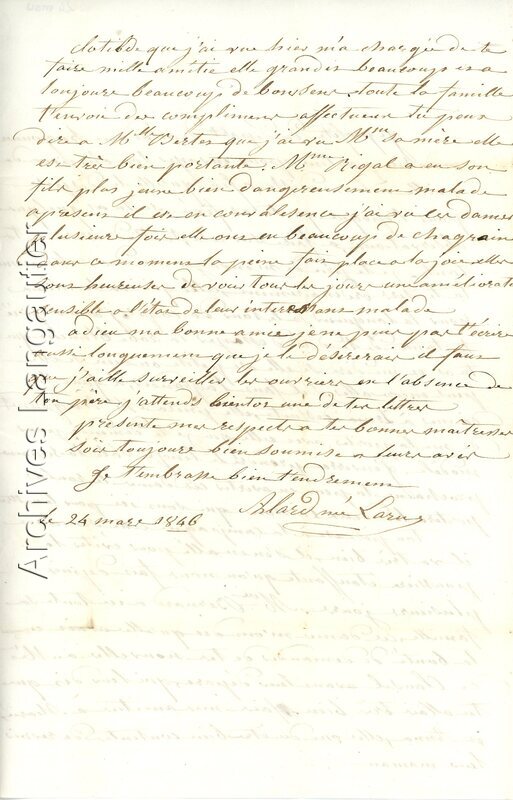 clotilde que j'ai vue hier m'a chargée de te
faire mille amitie elle grandit beaucoup et a
toujours beaucoup de bonsens toute la famille
t'envoie des compliments affectueux tu peux
dire a Mlle Berter que j'ai vu Mme sa mère elle
est très bien portante. Mme Rigal a eu son
fils plus jeune bien dangereusement malade
apresent il est en convalisence j'ai vu ces dames
plusieurs fois elle ont eu beaucoup de chagrain
dans ce moment la peine fait place a la joie elles
sont heureuses de voir tous les jours un améliorat
sensible a l'état de leur interessant malade
adieu ma bonne amie je ne puis pas t'écrire
aussi longuement que je le désirerais il faut
que j'aille surveiller les ouvriers en l'absence de
ton père j'attends bientot une de tes lettres
présente mes respects a tes bonnes maîtresses
sois toujours bien soumise a leurs avis
Je t'embrasse bien tendrement
Alard né Larue
le 24 mars 1846
Archives Langautier